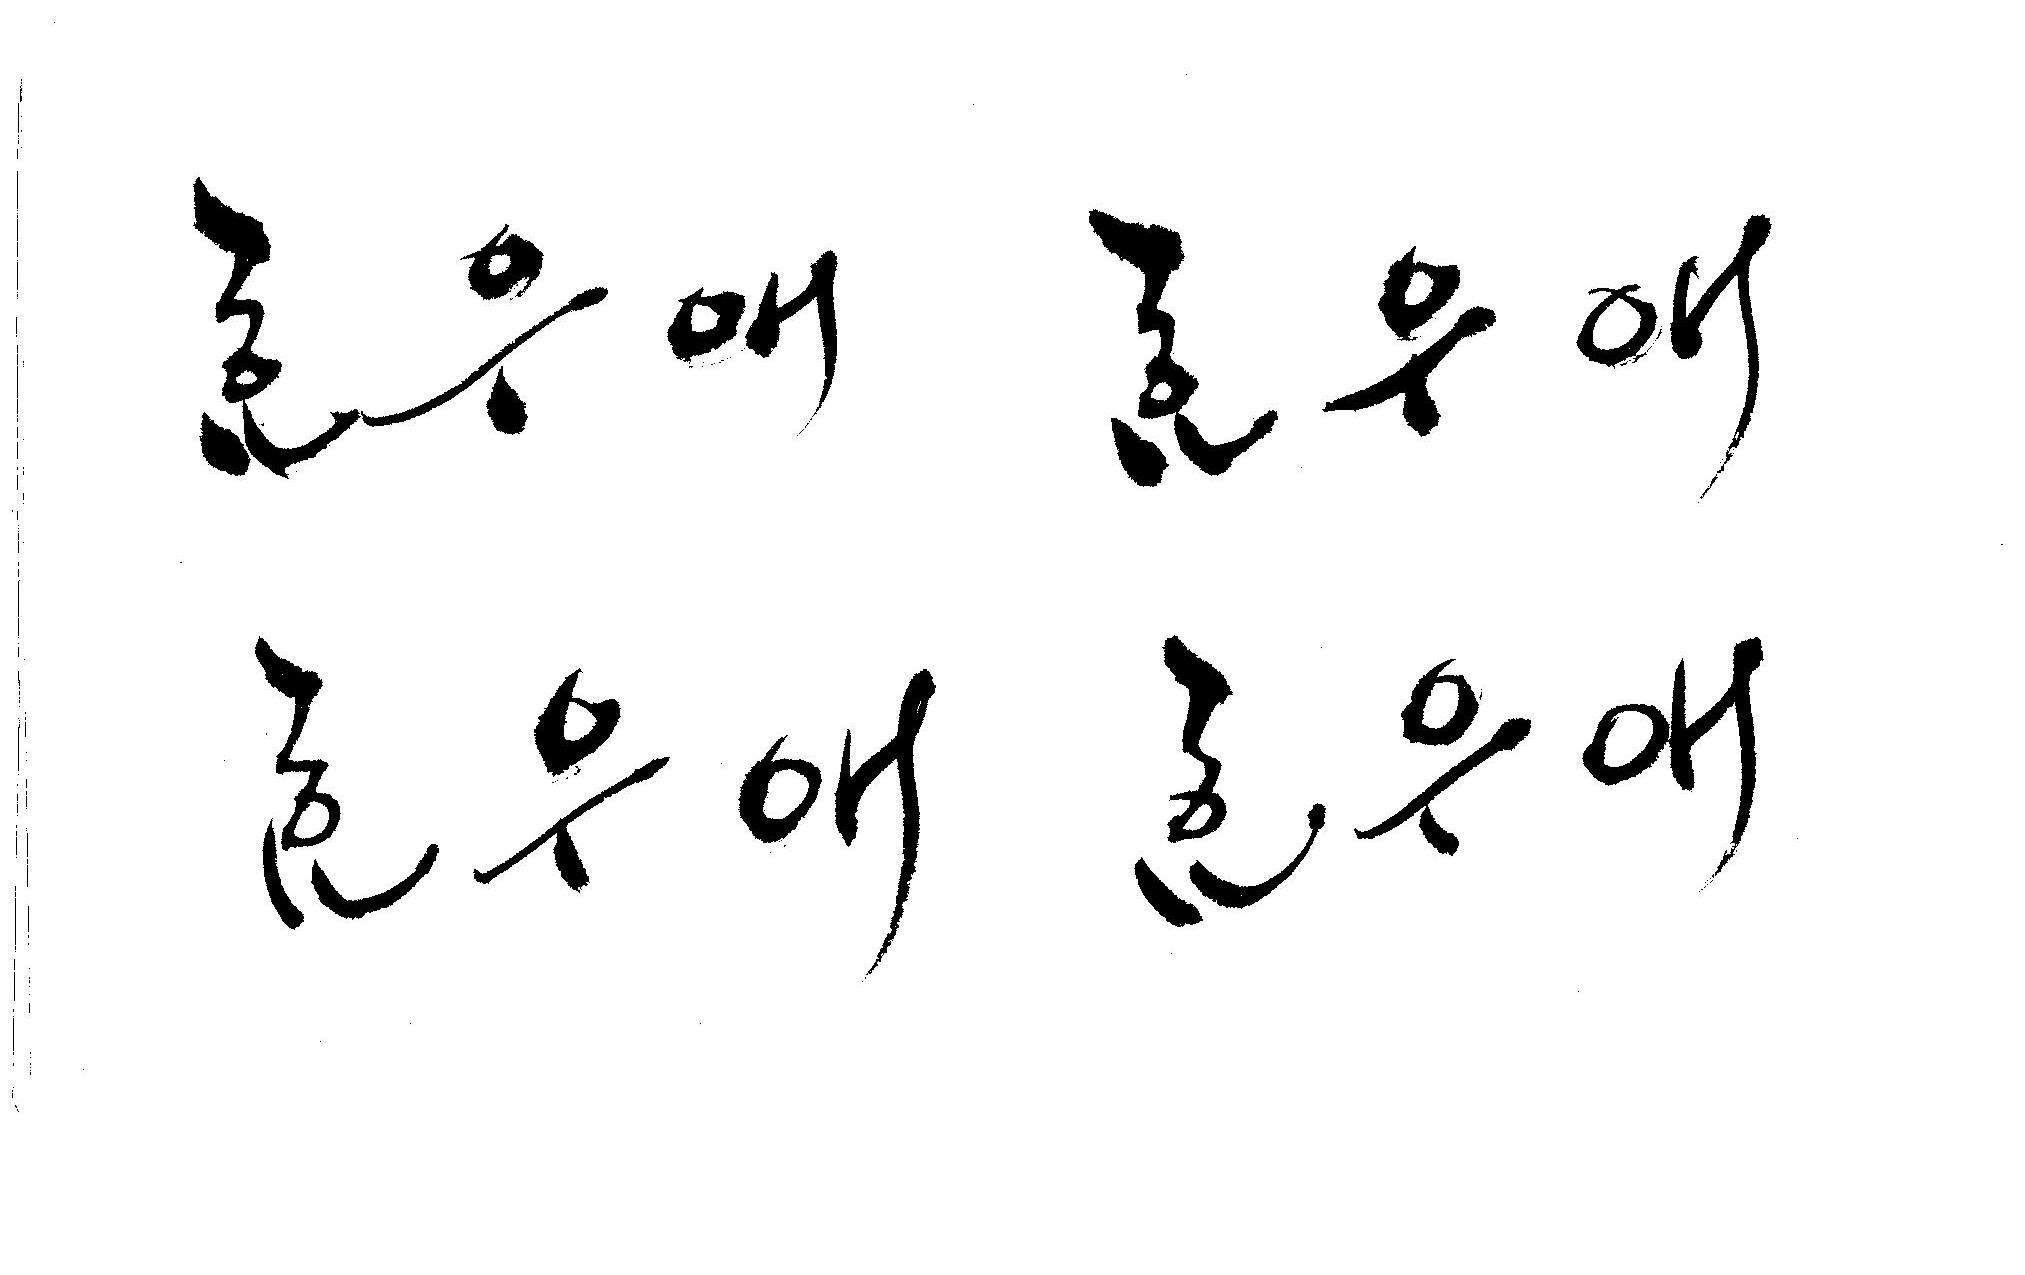 효우애 효우애
효우애 효우애